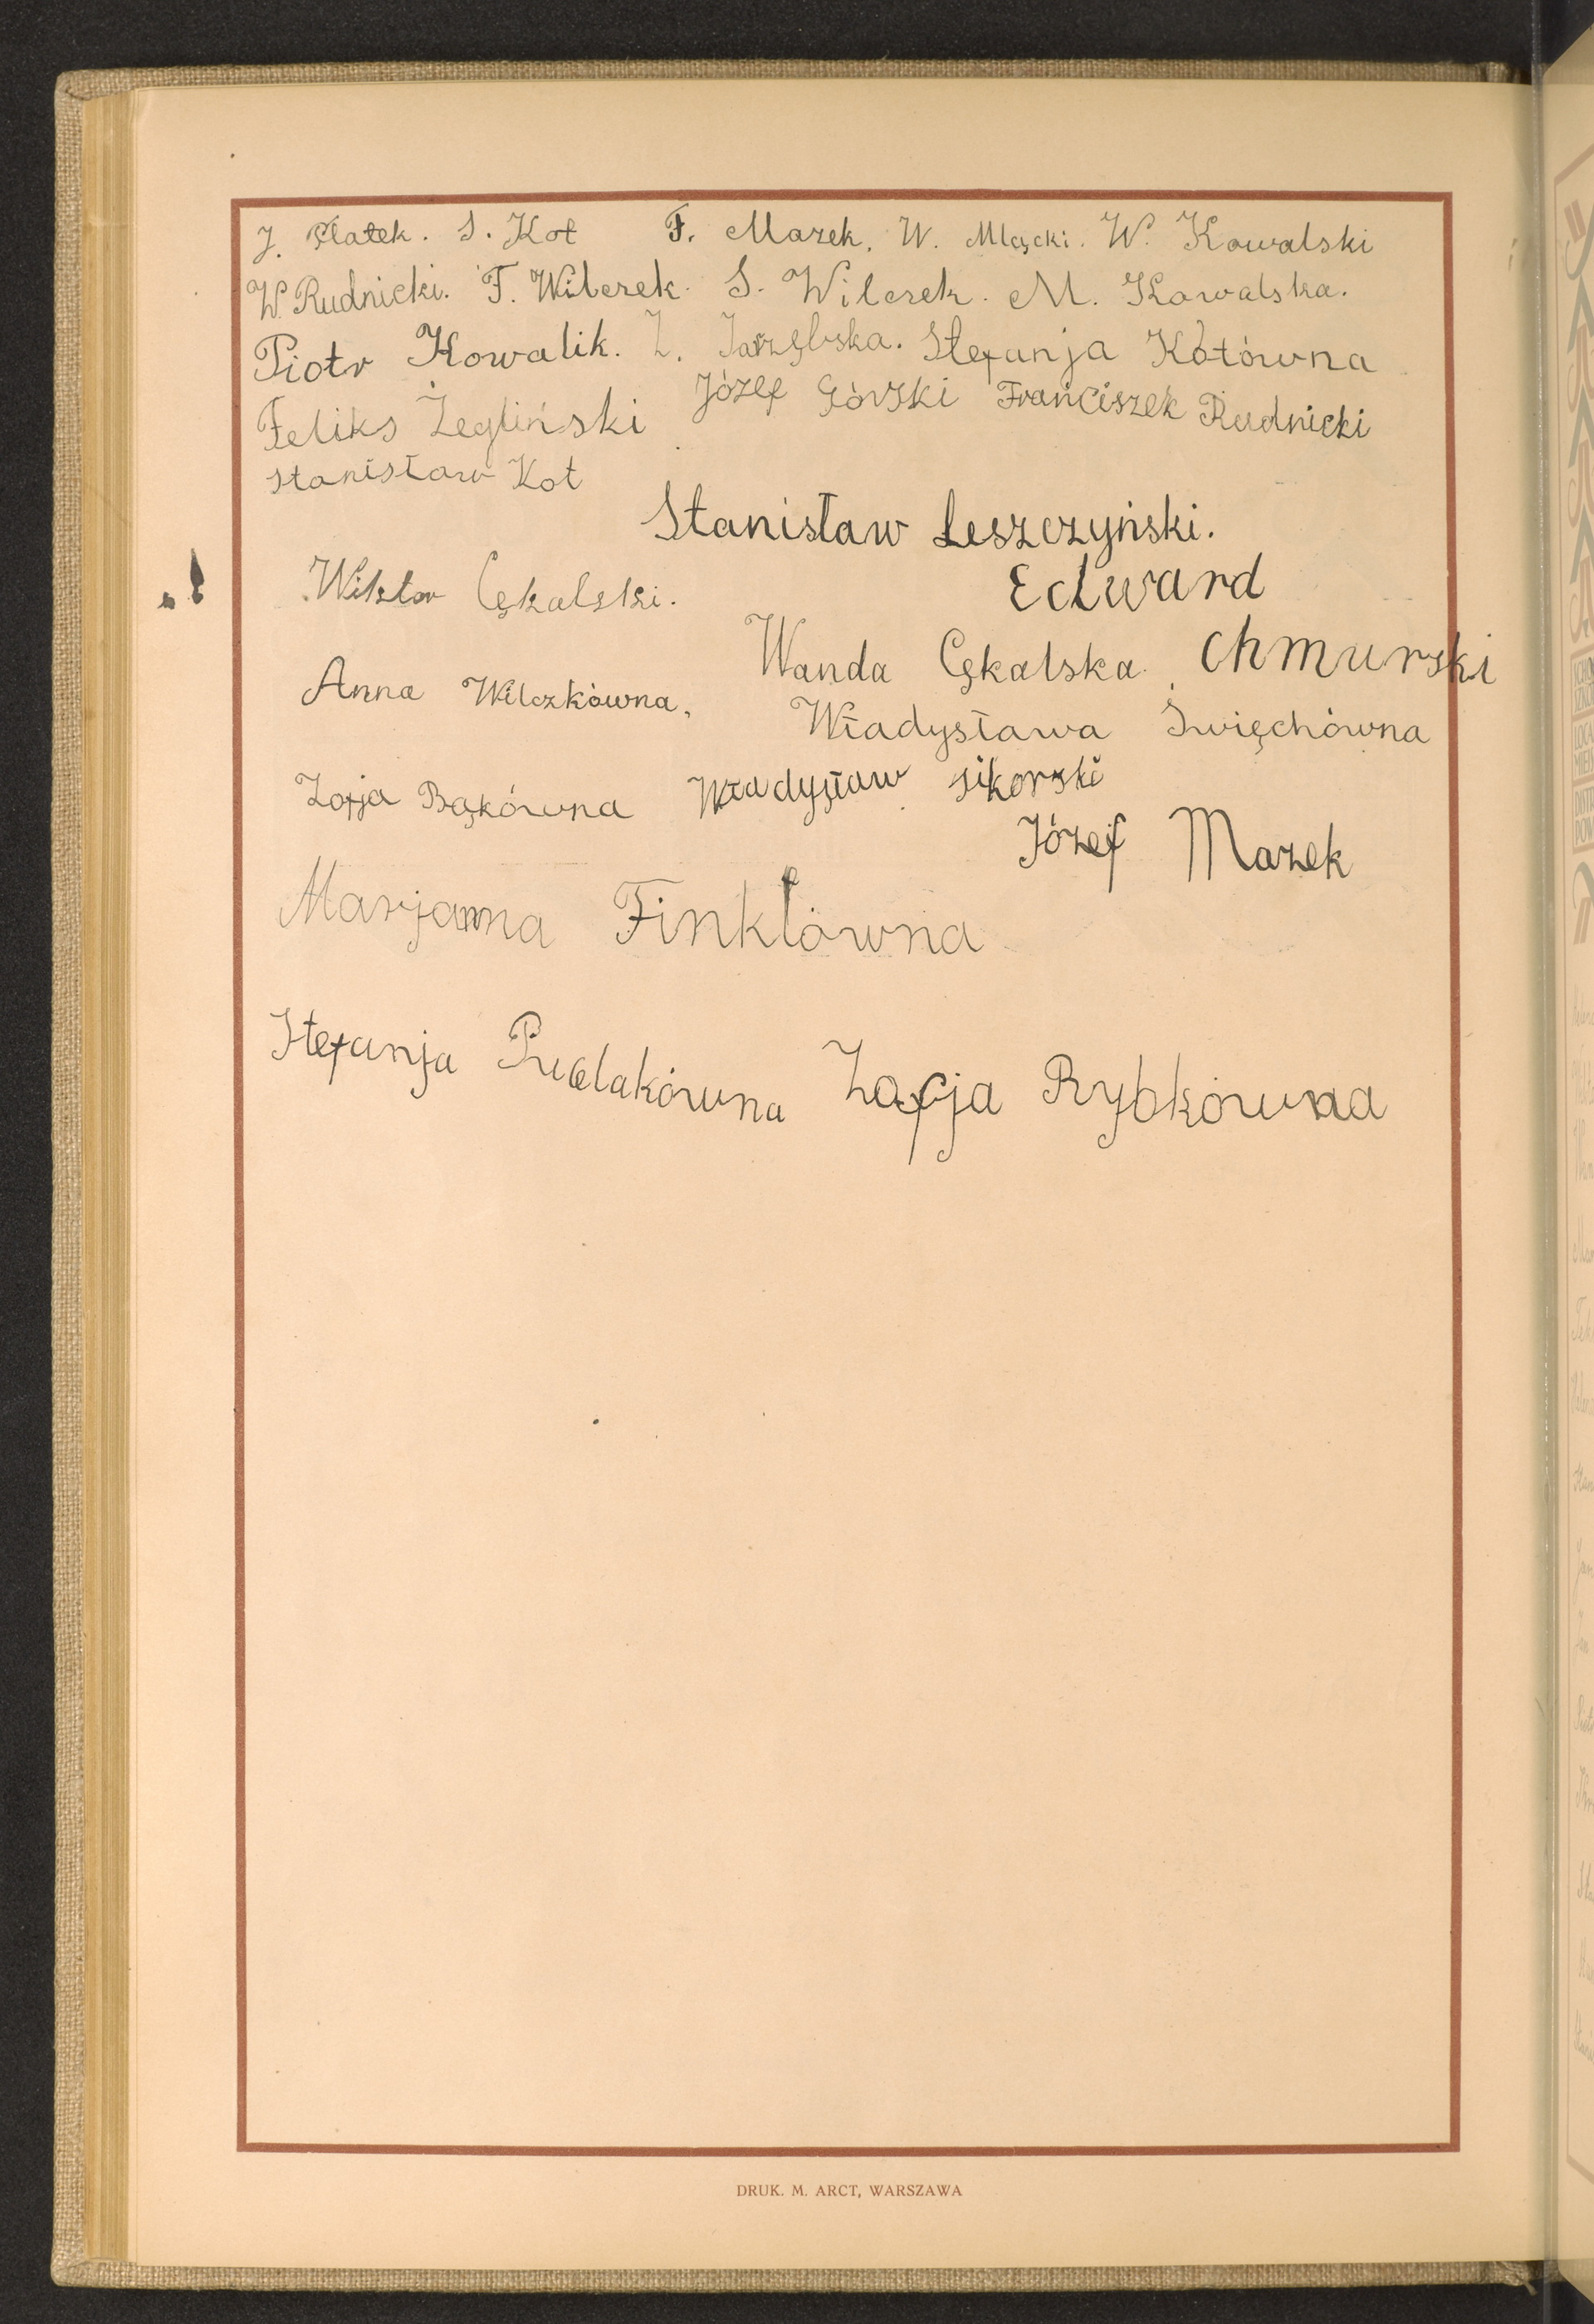 J. Płatek. S. Kot F. Mazek. W. Mlącki. W. Kowalski
W. Rudnicki. F. Wilczek. S. Wilczek. M. Kowalska.
Piotr Kowalik. Z. Jarzębska. Stefanja Kotówna
Feliks Żegliński Józef Górski Franciszek Rudnicki
Stanisław Kot
Stanisław Leszczyński.
Wiktor Cękalski. Edward
Wanda Cękalska. Chmurski
Anna Wilczkówna.
Władysława Święchówna
Zofja Bąkówna Władysław Sikorski
Józef Mazek
Marjanna Finklówna
Stefanja Zofja Rybkówna
DRUK. M. ARCT, WARSZAWA